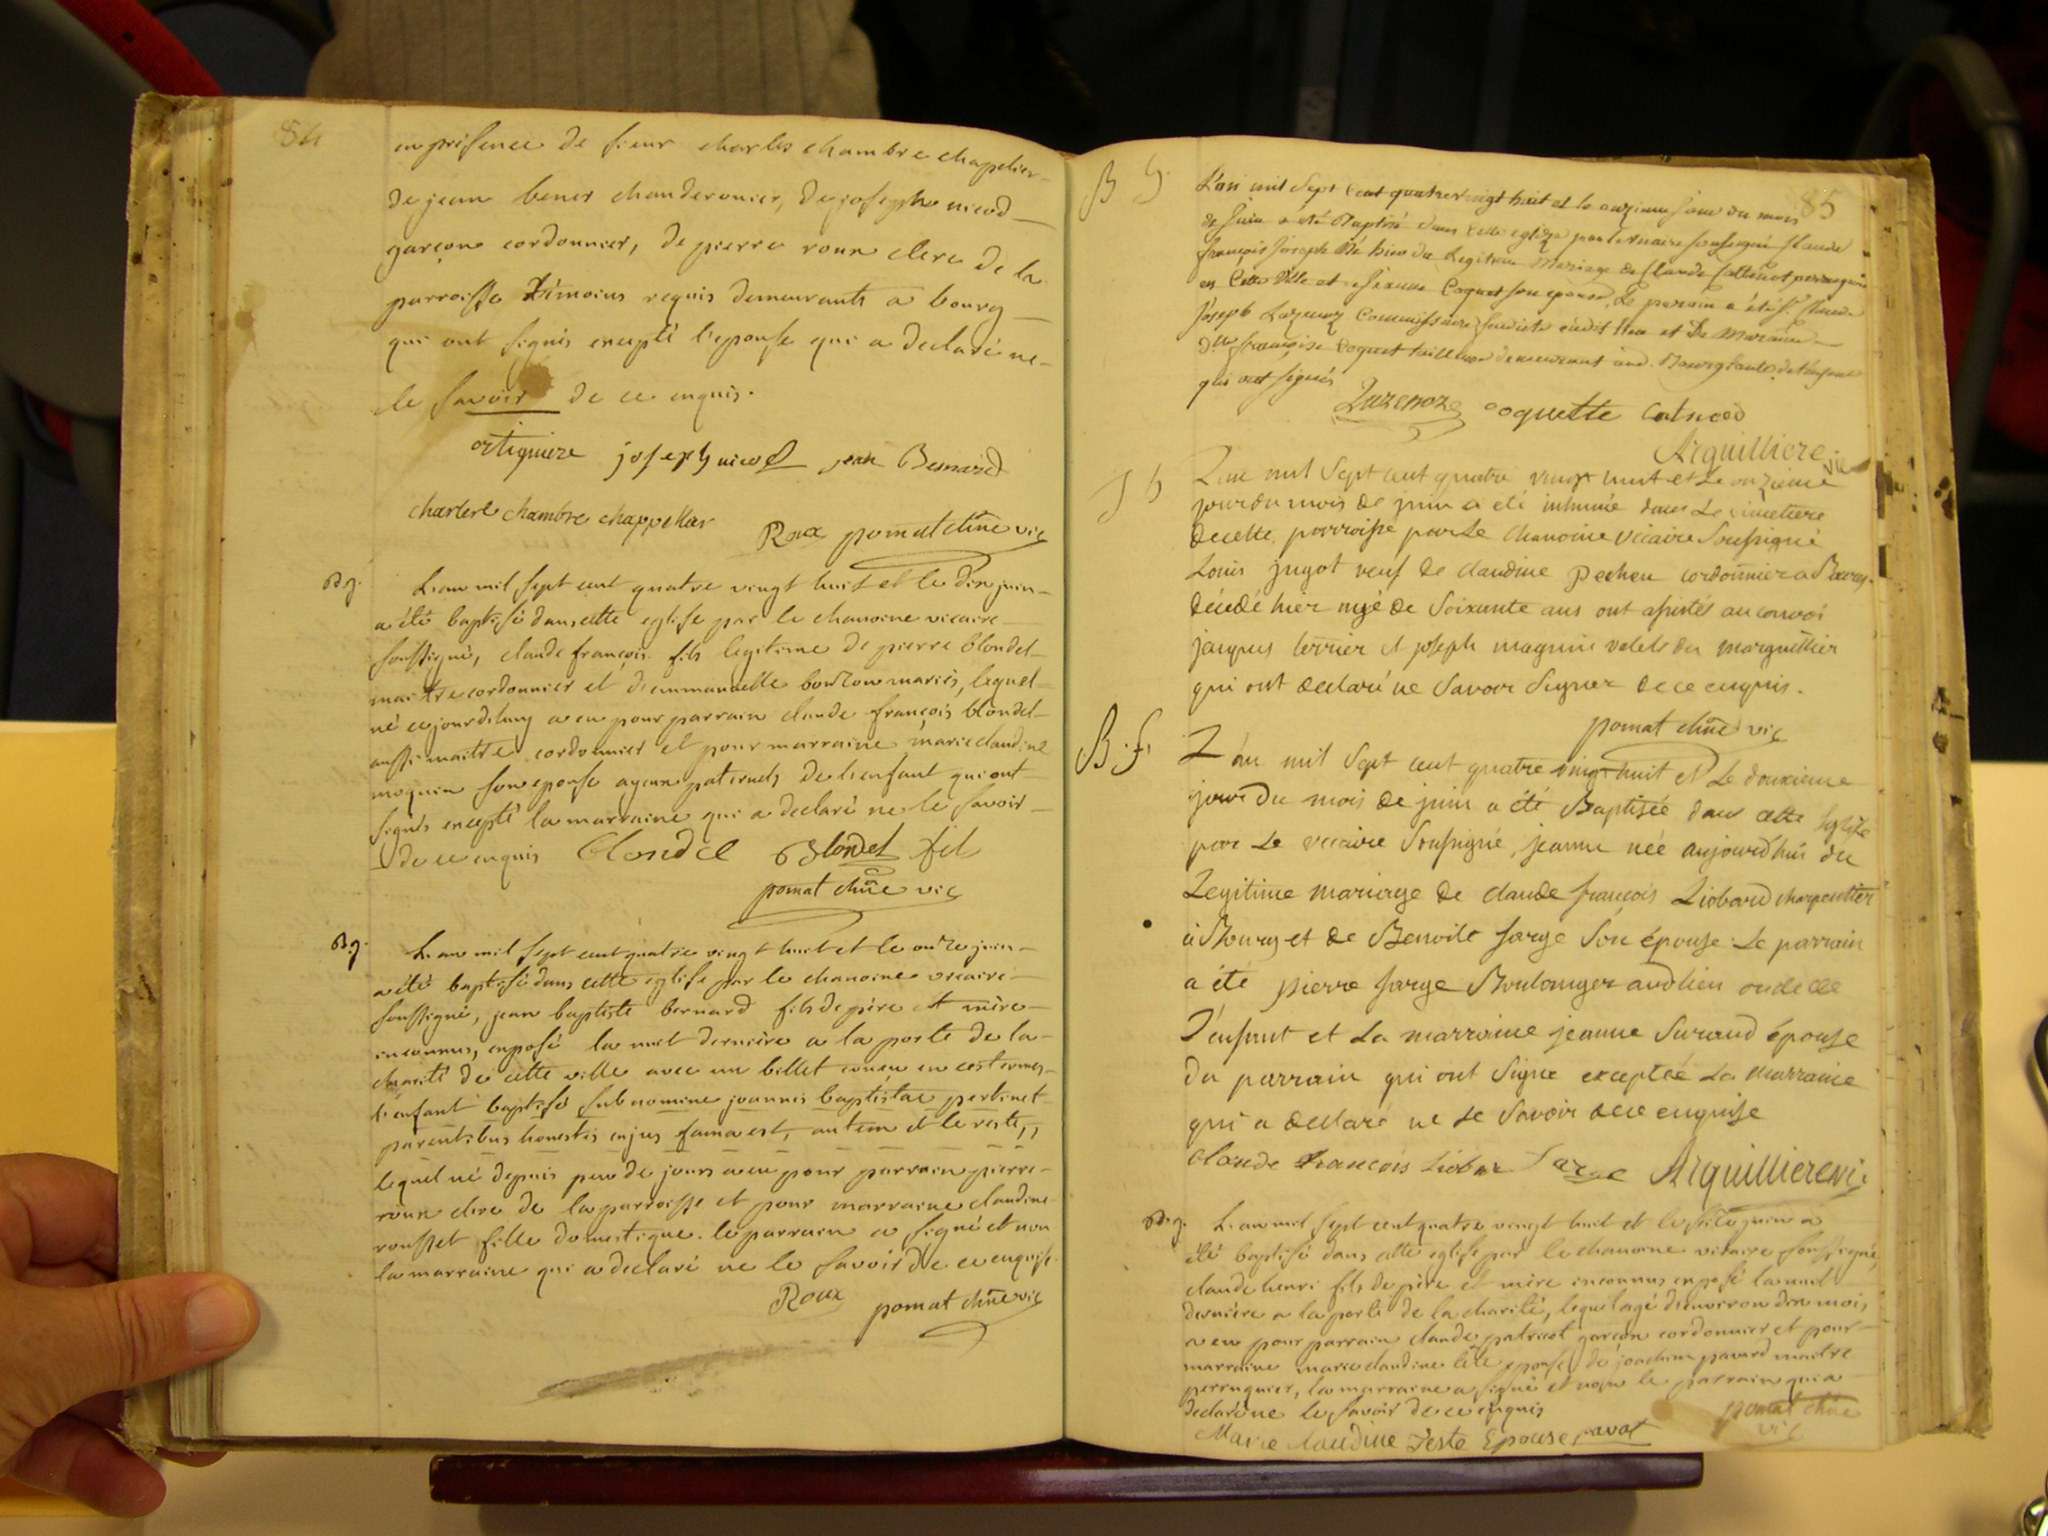 84
en présence de sieur charles chambre chapelier
de jean bener chauderonier, de joseph nicod
garçon cordonnier, de pierre roux clerc de la
parroisse témoins requis demeurants a bourg
qui ont signés excepté l'epouse qui a declaré ne
le savoir de ce enquis.
ortiguiere joseph nicod jean Bernard
charle chambre chappellier
Roux pomat chne vic
B.g. L'an mil sept cent quatre vingt huit et le dix juin
a été baptisé dans cette eglise par le chanoine vicaire
soussigné, claude françois fils legitime de pierre blondel
maitre cordonnier et d'emmanuelle mariés, lequel
né ce jourd'huy a eu pour parrain claude françois blondel
aussi maitre cordonnier et pour marraine marie claudine
moquin son epouse ayeux paternels de l'enfant qui ont
signés excepté la marraine qui a declaré ne le savoir
de ce enquis blondel Blondel fil
pomat chne vic
B.g. L'an mil sept cent quatre vingt huit et le onze juin
a été baptisé dans cette eglise par le chanoine vicaire
soussigné, jean baptiste bernard fils de père et mère
inconnus, exposé la nuit dernière a la porte de la
charité de cette ville avec un billet conçu en ces termes
l'enfant baptisé sub nomine joannis baptistae pertinet
parentibus honestis cujus fama est, autem et le reste,,
lequel né depuis peu de jours a eu pour parrain pierre
roux clerc de la parroisse et pour marraine claudine
rousset fille domestique. le parrain a signé et non
la marraine qui a declaré ne le savoir de ce enquise.
Roux pomat chne vic
85
B G. L'an mil sept cent quatrevingt huit et le onzieme jour du mois
de juin a été Baptisé dans cette eglise par le vicaire soussigné Claude
françois joseph né hier du Legitime Mariage de Claude perruquier
en Cette Ville et Coquet son epouse, Le parrain a été Sr. Claude
joseph Commissaire feudiste audit lieu et La Maraine
Dlle françoise Coquet demeurant aud. Bourg tante de l'enfant
qui ont signés
coquette
Arguilliere vic
L'an mil Sept cent quatre vingt huit et Le onzieme
jour du mois de juin a été inhumé dans Le cimetiere
de cette parroisse par Le chanoine vicaire Soussigné
Louis jugot veuf de claudine pecheu cordonnier a Bourg
décédé hier agé de Soixante ans ont assistés au convoi
jacques terrier et joseph magnin valets du marguillier
qui ont declaré ne Savoir Signer de ce enquis.
pomat chne vic
B.f. L'an mil Sept cent quatre vingt huit et Le douzieme
jour du mois de juin a été Baptisée dans cette Eglise
par Le vicaire Soussigné, jeanne née aujourd'hui du
Legitime mariage de claude françois Liobard charpentier
à Bourg et de Benoite farge Son épouse. Le parrain
a été pierre farge Boulanger audlieu oncle de
L'enfant et La marraine jeanne Suraud épouse
du parrain qui ont Signé exceptée La marraine
qui a declaré ne Le Savoir de ce enquise
Claude francois Liobar farge Arguilliere vic
B.g. L'an mil sept cent quatre vingt huit et le juin a
été baptisé dans cette eglise par le chanoine vicaire soussigné,
claude henri fils de père et mère inconnus exposé la nuit
dernière a la porte de la charité, lequel agé d'environ dix mois,
a eu pour parrain claude patricot garçon cordonnier et pour
marraine marie claudine epouse de joachim pavard maitre
perruquier, la marraine a signé et non le parrain qui a
declaré ne le savoir de ce enquis
pomat chne
vic
Marie claudine Teste Epouse pavat